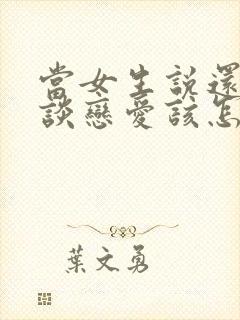 當女生說還
談戀愛該怎
葉文勇